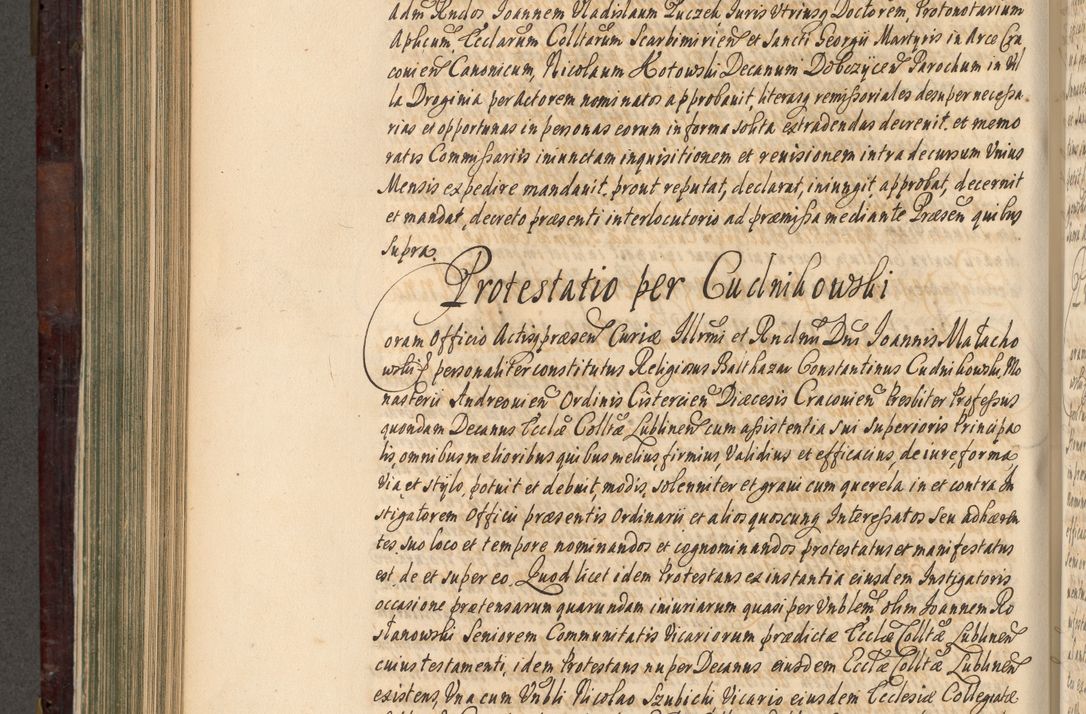 adm Rndos Joannem Vladislaum Łuczek Juris Vtriusq Doctorem, Protonotarium
Aplicum, Ecclarum Colltarum Scarbimirien et Sancti Georgii Martyris in Arce Cra
covien Canonicum, Nicolaum Kotowski Decanum Dobczycen Parochum in Vil
la Droginia per Actorem nominatos approbauit, literasq remissoriales desuper necessa
rias et opportunas in personas eorum in forma solita extradendas decreuit. et memo
ratis Commissariis iniunctam inquisitionem et reuisionem intra decursum Vnius
Mensis expedire mandauit. prout reputat, declarat, iniungit, approbat, decernit
et mandat, decreto præsenti interlocutorio ad præmissa mediante Præsen quibus
supra.
Protestatio per Cudnikowski
Coram Officio Actisq præsen Curiæ Illrmi et Rndmi Dni Joannis Małacho
wski personaliter constitutus Religiosus Balthazar Constantinus Cudnikowski, Mo
nasterii Andreouien Ordinis Cistercien Diæcesis Cracouien Presbiter Professus
quondam Decanus Ecclæ Colltæ Lublinen cum assistentia sui Superioris Principa
lis, omnibus melioribus quibus melius, firmius, Validius et efficacius, de iure, forma
Via et stylo, potuit et debuit, modis, solenniter et graui cum querela in et contra In
stigatorem Officii præsentis Ordinarii et alios quoscunq Interessatos seu adhæren
tes, suo loco et tempore nominandos et cognominandos protestatus et manifestatus
est, de et super eo. Quod licet idem Protestans ex instantia eiusdem Instigatoris
occasione prætensarum quarundam iniuriarum quasi per Vnblem olim Joannem Ro
stanowski Seniorem Communitatis Vicariorum prædictæ Ecclæ Colltæ Lublinen
cuius testamenti, idem Protestans nuper Decanus eiusdem Ecclæ Colltæ Lublinen
existens, Vna cum Vnbli Nicolao Szubicki Vicario eiusdem Ecclesiæ Collegiatæ